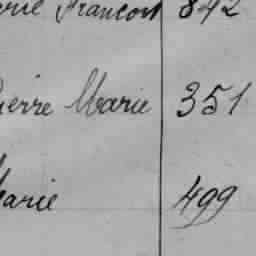 François 842
Pierre Marie 351
Marie 499